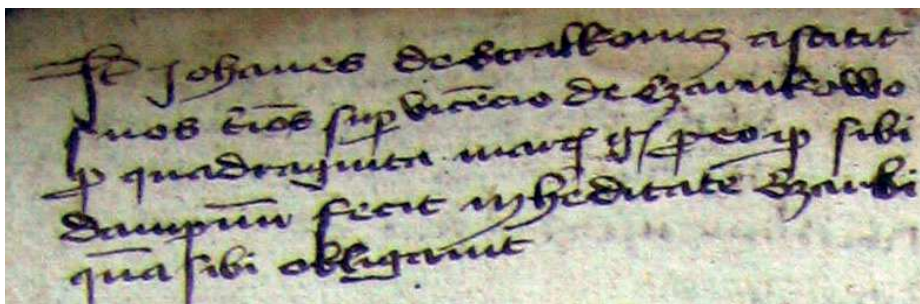 It Johanes de Strallkowicz astitit
suos t̄ios sup vicēcio de Czarnkowo
p quadraginta marc gͬ p eo qͥ sibi
dampnū fecit in heditate Czarnki
quā sibi obligavit